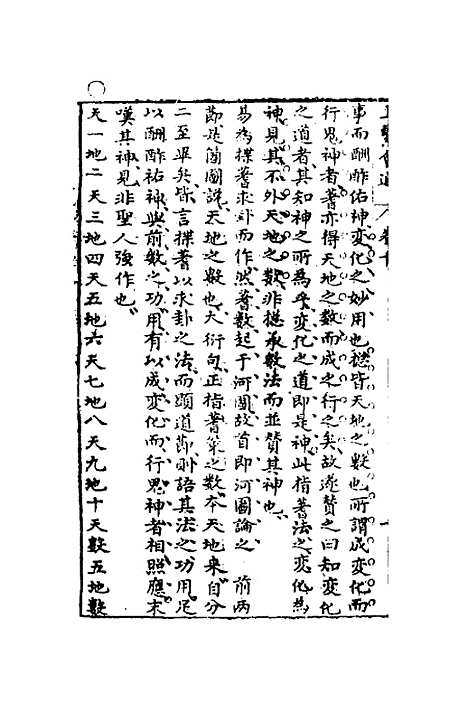 事而酬酢佑神變化之妙用也摠皆天地之數也所謂成變化而
行鬼神者蓍亦得天地之數而成之行之矣故遂贊之曰知變化
之道者其知神之所為乎變化之道即是神此指蓍法之變化為
神見其不外天地之數非摠承數法而並贊其神也
易為揲蓍求卦而作然蓍數起于河圖故首即河圖論之 前兩
節是箇圖說天地之數也大衍句正指蓍策之數本天地來自分
二至畢矣皆言揲蓍以求卦之法而顯道節則語其法之功用足
以酬酢祐神與前數之功用有以成變化而行鬼神者相照應末
嘆其神見非聖人強作也
天一地二天三地四天五地六天七地八天九地十天數五地數